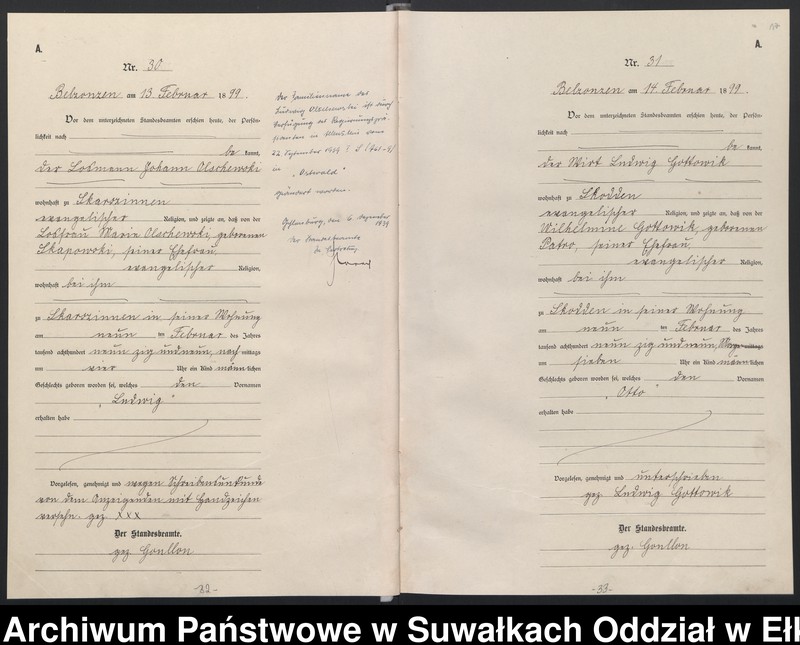 A.
Nr. 30
Belzonzen am 13. Februar 1899.
Vor dem unterzeichneten Standesbeamten erschien heute, der Persön-
lichkeit nach
be kannt,
der Losmann Johann Olschewski
wohnhaft zu Skarzinnen
evangelischer Religion, und zeigte an, daß von der
Losfrau Marie Olschewski, geborenen
Skapowski, seiner Ehefrau,
evangelischer Religion,
wohnhaft bei ihm
zu Skarzinnen in seiner Wohnung
am neun ten Februar des Jahres
tausend achthundert neun zig und neun, nach mittags
um vier Uhr ein Kind männ lichen
Geschlechts geboren worden sei, welches den Vornamen
„Ludwig“
erhalten habe
Vorgelesen, genehmigt und wegen Schreibensunkunde
von dem Anzeigenden mit Handzeichen
versehn. gez. XXX
Der Standesbeamte.
gez. Goullon
-32-
Der Familienname des
Ludwig Olschewski ist durch
Verfügung des Regierungsprä-
sidenten in Allenstein vom
22. September 1939
in „Ostwald“
geändert worden.
den 6. Dezember
1939
Der Standesbeamte
A.
Nr. 31
Belzonzen am 14. Februar 1899.
Vor dem unterzeichneten Standesbeamten erschien heute, der Persön-
lichkeit nach
be kannt,
der Wirt Ludwig Gottowik
wohnhaft zu Skodden
evangelischer Religion, und zeigte an, daß von der
Wilhelmine Gottowik, geborenen
Patro, seiner Ehefrau,
evangelischer Religion,
wohnhaft bei ihm
zu Skodden in seiner Wohnung
am neun ten Februar des Jahres
tausend achthundert neun zig und neun, mittags
um sieben Uhr ein Kind männ lichen
Geschlechts geboren worden sei, welches den Vornamen
„Otto“
erhalten habe
Vorgelesen, genehmigt und unterschrieben
gez. Ludwig Gottowik
Der Standesbeamte.
gez. Goullon
-33-
Archiwum Państwowe w Suwałkach Oddział w Ełk